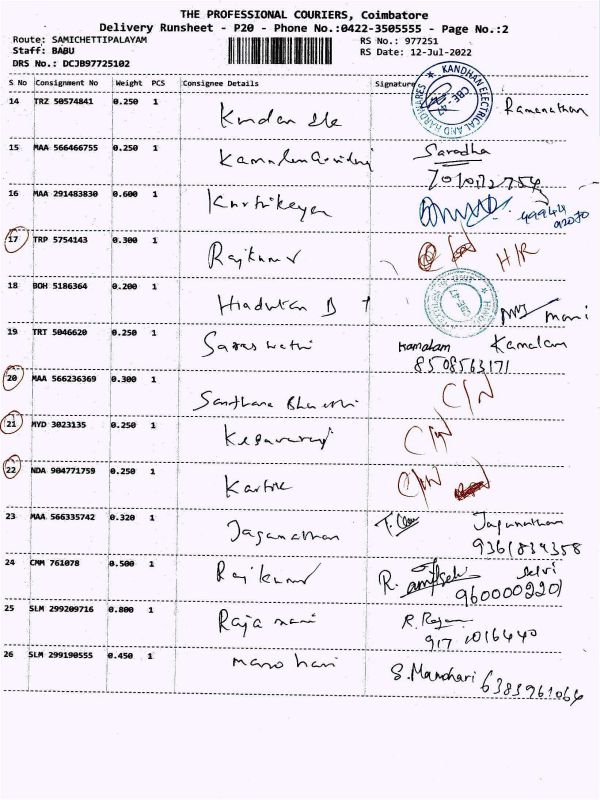 THE PROFESSIONAL COURIERS, Coimbatore
Delivery Runsheet - P20 - Phone No.:0422-3505555 - Page No.:2
Route: SAMICHETTIPALAYAM RS No.: 977251
Staff: BABU RS Date: 12-Jul-2022
DRS No.: DCJB97725102
S No Consignment No Weight PCS Consignee Details Signature
KANDHAN ELECTRICAL AND HARDWARES
CBE-47
14 TRZ 50574841 0.250 1 Ramanathan
15 MAA 566466755 0.250 1 Saradha
16 MAA 291483830 0.600 1 Karthikeyan
49944
92070
17 TRP 5754143 0.300 1 Rajkumar H/R
18 BOH 5186364 0.200 1 mani
CBE-47
19 TRT 5046620 0.250 1 Saraswathi Kamalam Kamalam
8508563171
20 MAA 566236369 0.300 1 C/N
21 MYD 3023135 0.250 1 C/N
22 NDA 904771759 0.250 1 C/N
23 MAA 566335742 0.320 1 Jaganathan Jaganathan
9361834358
24 CMM 761078 0.500 1 Rajkumar R. Selvi
9600002201
25 SLM 299209716 0.800 1 Raja mani R. Rajam
917 1016440
26 SLM 299190555 0.450 1 mano hari S. Manohari 6383961064